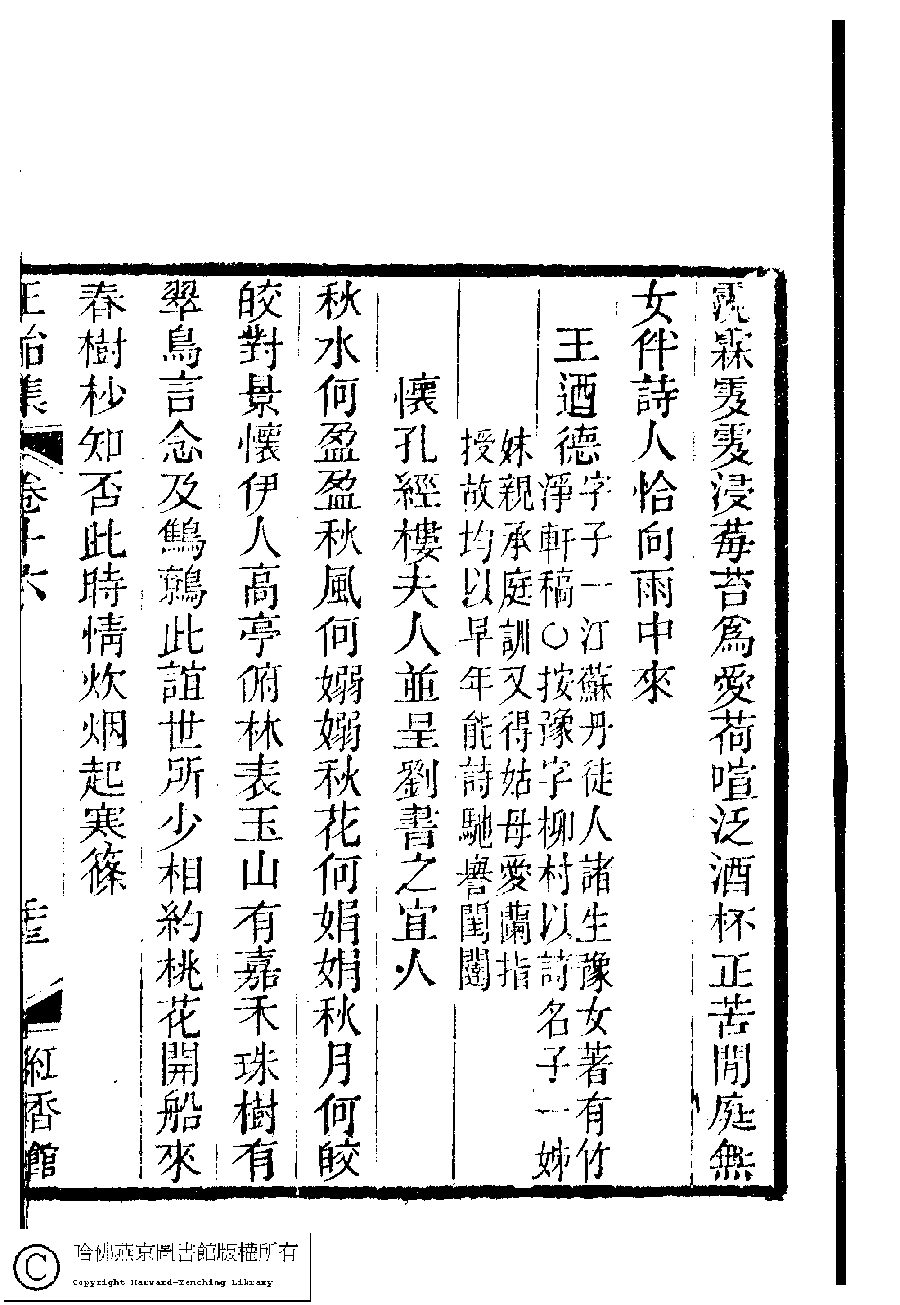 霖霎霎浸莓苔爲愛荷喧泛酒杯正苦閒庭無
女伴詩人恰向雨中來
王迺德
字子一江蘇丹徒人諸生豫女著有竹
淨軒稿○按豫字柳村以詩名子一姊
妹親承庭訓又得姑母愛蘭指
授故均以早年能詩馳譽閨闥
懷孔經樓夫人並呈劉書之宜人
秋水何盈盈秋風何嫋嫋秋花何娟娟秋月何皎
皎對景懷伊人高亭俯林表玉山有嘉禾珠樹有
翠鳥言念及鶼鶼此誼世所少相約桃花開船來
春樹杪知否此時情炊烟起寒篠
正始集 卷十六 紅香館
哈佛燕京圖書館版權所有
Copyright Harvard-Yenching Library